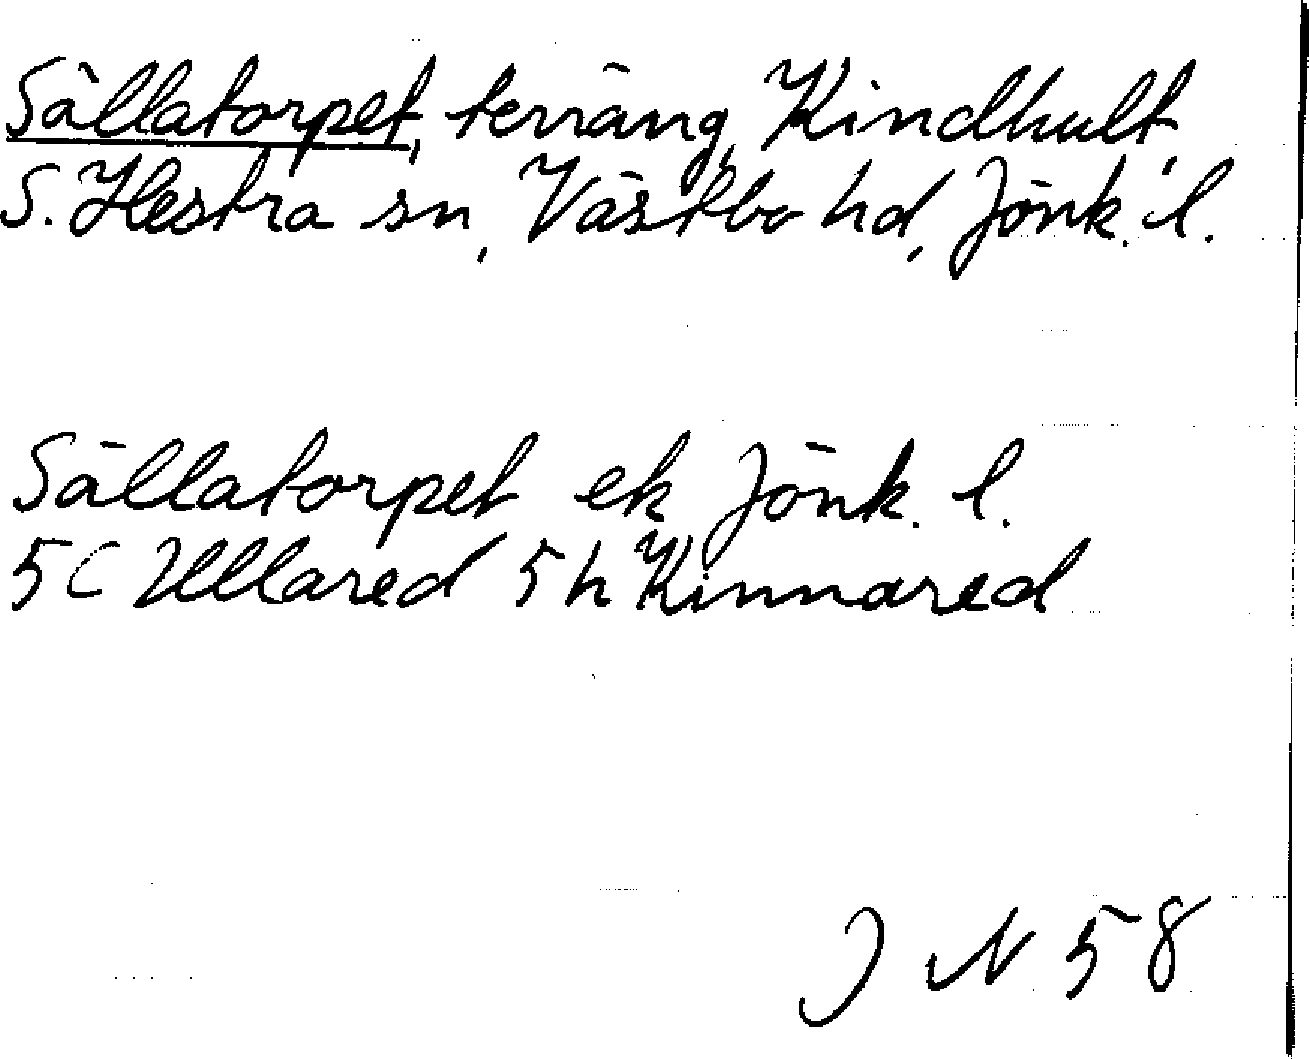 Sällatorpet, terräng, Kindhult,
S. Hestra sn, Västbo hd, Jönk. l.
Sällatorpet ek Jönk. l.
5C Ullared 5h Kinnared
J N 58